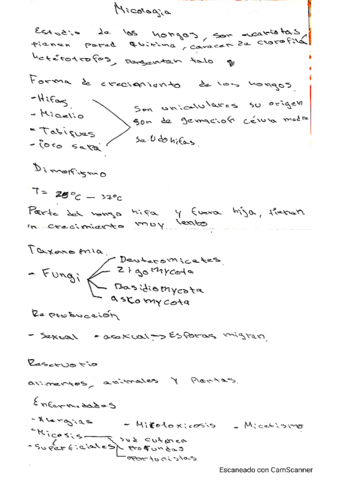 Micologia
Estudio de los hongos, son eucariotas,
tienen pared quitina, carecen de clorofila
heterotrofos, presentan talo
Forma de crecimiento de los hongos.
- Hifas
- Micelio
- Tabiques
Son unicelulares su origen
son de gemación célula madre
Seudohifas.
Dimorfismo
T= 25°C - 37°C
Parte del hongo hifa y fuera hija, tienen
un crecimiento muy lento
Taxonomia
- Fungi
Deuteromicetes
Zigomycota
Basidiomycota
askomycota
Reproducción
- Sexual - asexual → Esporas migran.
Reservorio
alimentos, animales y plantas.
Enfermedades
- Alergias - Mikotoxicosis - Micetismo
- Micosis
- Superficiales
sub cutanea
profundas
oportonistas
Escaneado con CamScanner